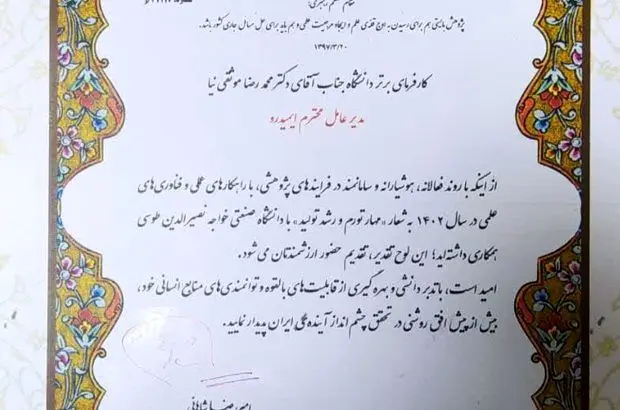 پژوهش بایستی هم برای رسیدن به اوج قله‌ی علم و ایجاد مرجعیت علمی و هم باید برای حل مسائل جاری کشور باشد.
۱۳۹۷/۳/۲۰
کارفرمای برتر دانشگاه جناب آقای دکتر محمد رضا موثقی نیا
مدیر عامل محترم ایمیدرو
از اینکه با روند فعالانه، هوشیارانه و سامانمند در فرایندهای پژوهشی، با راهکارهای عملی و فناوری‌های
علمی در سال ۱۴۰۲ به شعار «مهار تورم و رشد تولید» با دانشگاه صنعتی خواجه نصیرالدین طوسی
همکاری داشته‌اید؛ این لوح تقدیر، تقدیم حضور ارزشمندتان می‌شود.
امید است، با تدبر دانشی و بهره گیری از قابلیت‌های بالقوه و توانمندی‌های منابع انسانی خود،
بیش از پیش افق روشنی در تحقق چشم انداز آینده‌ی ایران پدیدار نمایید.